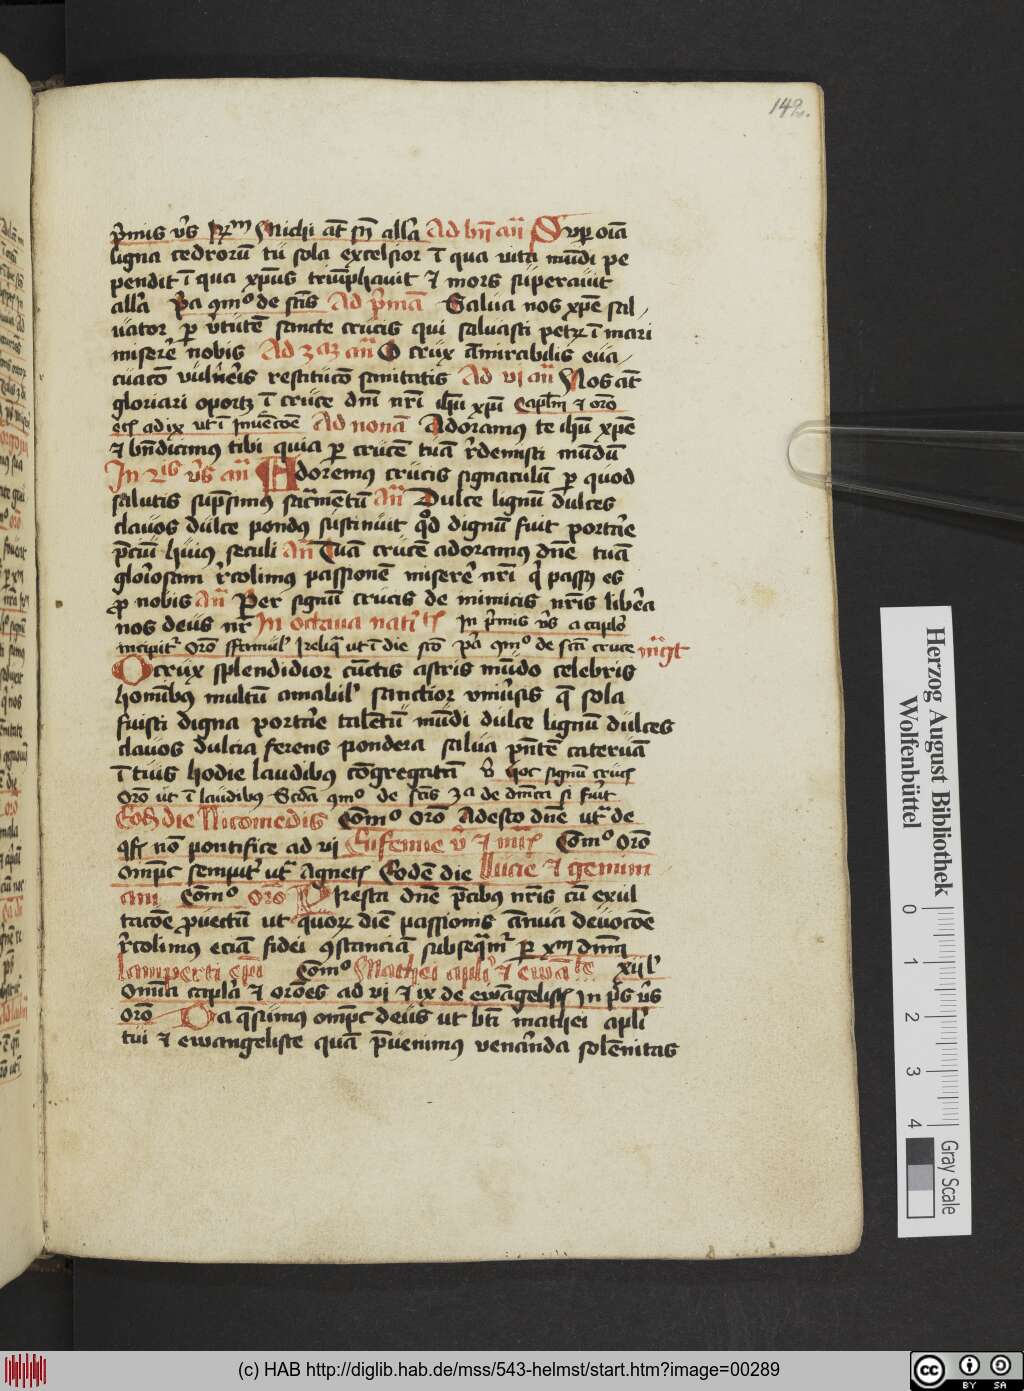 142.
p̄mis v̄s Michi aūt sn̄ all̄a Ad bn̄ an̄ Sup oīa
ligna cedrorū tu sola excelsior ī qua vita mūdi pe
pendit ī qua xp̄us triūphauit ⁊ mors superauit
all̄a de sctīs Ad p̄mā Salua nos xp̄e sal
uator p v̄tutē sancte crucis qui saluasti petꝝ ī mari
miserē nobis Ad an̄ O crux āmirabilis eua
cuacō vulneris restitucō sanitatis Ad vi an̄ Nos aūt
gloriari oportꝫ ī cruce dn̄i nr̄i ihū xpī Capl̄m ⁊ orō
ad ix ut ī Inuēcōe Ad nonā Adoramꝰ te ihū xp̄e
⁊ bn̄dicimꝰ tibi quia p crucē tuā r̄demisti mūdū
In v̄s an̄ Adoremus crucis signaculū p quod
salutis sup̄simꝰ sacr̄mentū an̄ Dulce lignū dulces
clauos dulce pondꝰ sustinuit qd̄ dignū fuit portar̄e
p̄ciū huiꝰ seculi an̄ Tuā crucē adoramꝰ dn̄e tuā
gloriosam r̄colimꝰ passionē miserē nr̄i q̄ passꝰ es
ꝓ nobis An̄ Per signū crucis de inimicis nr̄is libera
nos deus nr̄ In octaua In p̄mis v̄s a capl̄o
incipit̄ orō ut ī die scō de sctā cruce
O crux splendidior cūctis astris mūdo celebris
hominibꝰ multū amabil̄ sanctior vniūsis q̄ sola
fuisti digna portar̄e talentū mūdi dulce lignū dulces
clauos dulcia ferens pondera salua pn̄tē cateruā
ī tuis hodie laudibꝰ cōgregatā v̄ hoc signū crucis
Orō ut ī laudibꝰ de sctīs de dn̄ica si fuīt
Eodē die Nicomedis Com̄o Orō Adesto dn̄e ut̄ de
nō pontifice ad vi Eufemie v̄ ⁊ Com̄o Orō
Omp̄s sempit̄ ut̄ Agnetꝭ Eodē die Lucie ⁊ gemini
ani Com̄o orō Presta dn̄e p̄cibꝰ nr̄is cū exul
tacōe ꝓuectū ut quoꝝ diē passionis ānua deuocōe
r̄colimꝰ eciā fidei ꝯstanciā subseqm̄r p xm̄ dn̄m
lamperti ep̄i Com̄o Mathei apl̄i ⁊ ewāˡᵉ xijl̄
Om̄ia capl̄a ⁊ orōes ad vi ⁊ ix de ewāgelistꝭ In p̄s v̄s
orō Da q̄sumus omp̄s deus ut bt̄i mathei apl̄i
tui ⁊ ewangeliste quā p̄uenimꝰ venerāda solēnitas
Herzog August Bibliothek
Wolfenbüttel
0 1 2 3 4
Gray Scale
(c) HAB http://diglib.hab.de/mss/543-helmst/start.htm?image=00289
cc BY SA